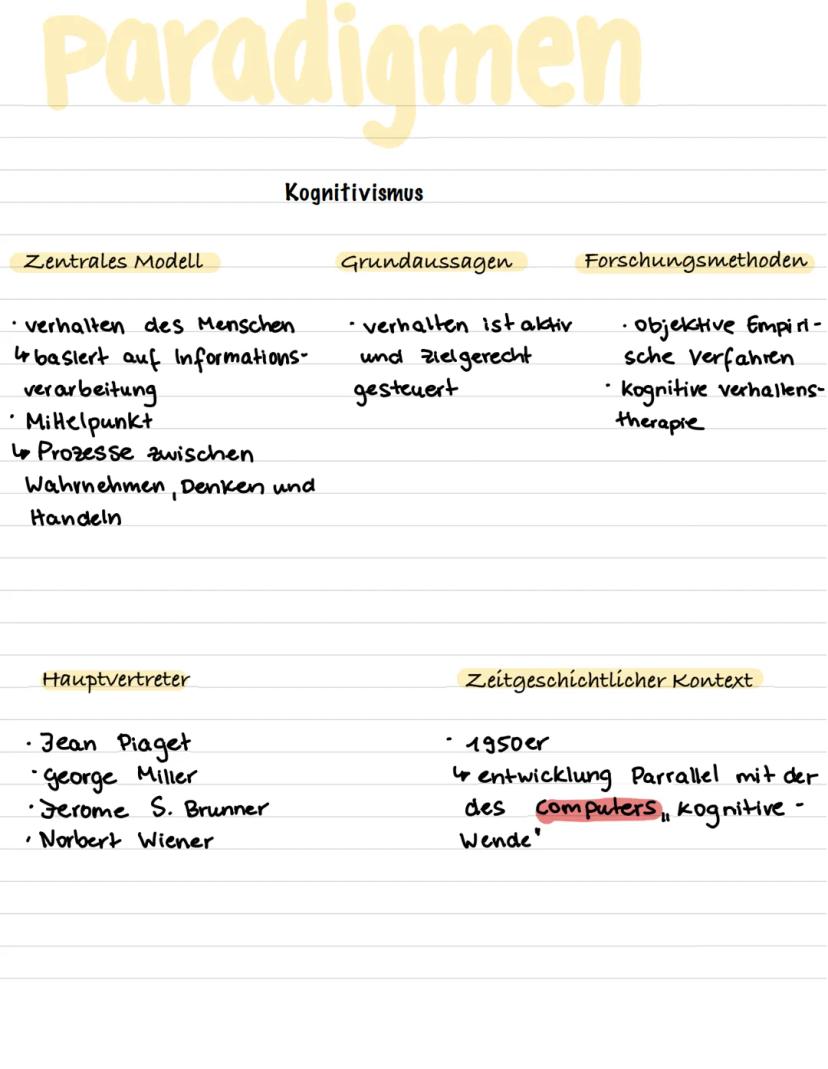 Paradigmen
Kognitivismus
Zentrales Modell
• verhalten des Menschen
↳ basiert auf Informations-
verarbeitung
• Mittelpunkt
↳ Prozesse zwischen
Wahrnehmen, Denken und
Handeln
Grundaussagen
• verhalten ist aktiv
und zielgerecht
gesteuert
Forschungsmethoden
• objektive Empiri-
sche Verfahren
• Kognitive verhaltens-
therapie
Hauptvertreter
• Jean Piaget
• George Miller
• Jerome S. Brunner
• Norbert Wiener
Zeitgeschichtlicher Kontext
• 1950er
↳ entwicklung Parrallel mit der
des Computers „Kognitive-
Wende"